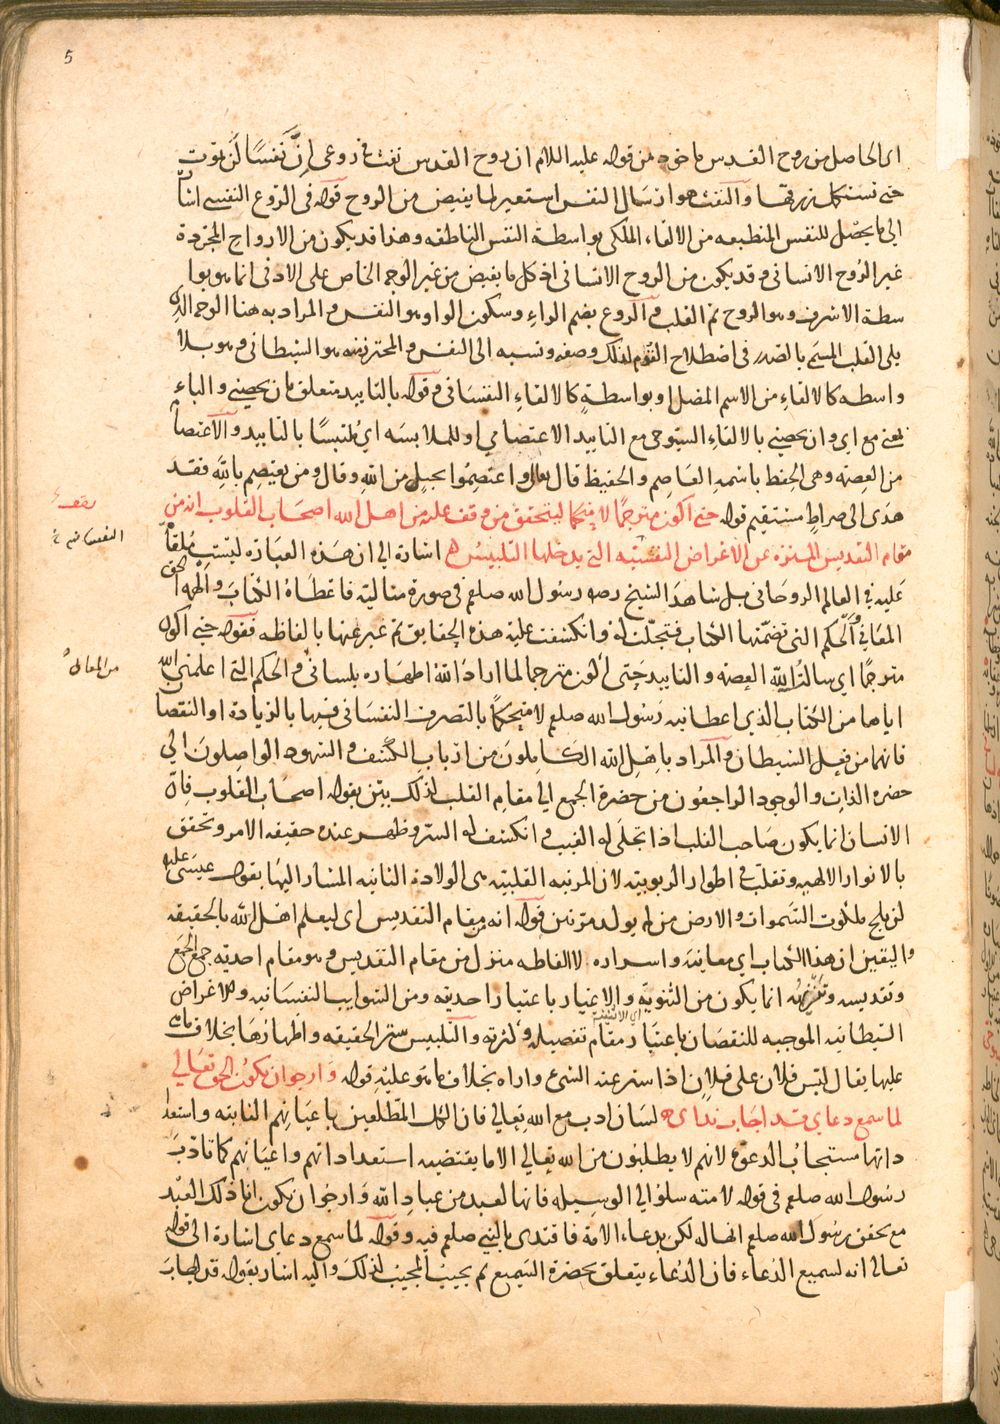 5
اى الحاصل من روح القدس ماخوذ من قوله عليه السلام ان روح القدس نفث فى روعى انّ نَفسًا لَن تموت
حتى تستكمل رزقها والنفث هو ارسال النفس استعير لما يفيض من الروح قوله فى الرّوع النفسى اشارة
الى ما يحصل للنفس المنطبعه من الالقاء الملكى بواسطة النفس الناطقه وهذا قد يكون من الارواح المجردة
غير الرّوح الانسانى وقد يكون من الروح الانسانى اذ كل ما يفيض من غير الوجه الخاص على الادنى انما هو بوا
سطة الاشرف وهو الروح ثم القلب والروع بضم الراء وسكون الواو هو النفس والمراد به هنا الوجه الذى
يلى القلب المسمى بالصدر فى اصطلاح القوم لذلك وصفه ونسبه الى النفس والمحترز عنه هو الشيطانى وهو بلا
واسطه كالالقاء من الاسم المضل او بواسطةٍ كالالقاء النفسانى وقوله بالتاييد متعلق بان يخصنى والباء
بمعنى مع اى وان يخصنى بالالقاء السبوحى مع التاييد الاعتصامى او للملابسه اى مُلتبسًا بالتاييد والاعتصام
من العصمة وهى الحفظ باسمه العاصم والحفيظ قال تعالى واعتصموا بحبل من الله وقال ومن يعتصم بالله فقد
هدى الى صراط مستقيم قوله حتى اكون مترجمًا لا متحكما ليتحقق من وقف عليه من اهل الله اصحاب القلوب انه من
مقام التقديس المنزه عن الاغراض النفسيه التى يدخلها التلبيس اشارة الى ان هذه العبارة ليست مُلقاة
عليه فى العالم الروحانى بل شاهد الشيخ رضه رسول الله صلعم فى صورة مثالية فاعطاهُ الكتاب والهمه الحق
المعانى والحكم التى تضمّنها الكتاب فتجلّت له وانكشفت عليه هذه الحقايق ثم عبر عنها بالفاظه فقوله حتى اكون
مترجمًا اى سالتُ الله العصمة والتاييد حتى اكون مترجما لما اراد الله اظهاره بلسانى والحكم التى اعلمنى الله
اياها من الكتاب الذى اعطانيه رسول الله صلعم لا متحكمًا بالتصرف النفسانى فيها بالزيادة او النقصان
فانهما من فعل الشيطان والمراد باهل الله الكاملون من ارباب الكشف والشهود الواصلون الى
حضرة الذات والوجود الراجعون من حضرة الجمع الى مقام القلب لذلك بيّن بقوله اصحاب القلوب فانّ
الانسان انما يكون صاحب القلب اذا تجلى له الغيب وانكشف له السرّ وظهر عنده حقيقة الامر وتحقق
بالانوار الالهيه وتقلّب فى اطوار الربوبية لان المرتبه القلبيه هى الولادة الثانيه المشار اليها بقول عيسى عليه
لن يلج ملكوت السموات والارض من لم يولد مرّتين قوله انه من مقام التقديس اى ليعلم اهل الله بالحقيقه
واليقين ان هذا الكتاب اى معانيه واسراره لا الفاظه منزل من مقام التقديس وهو مقام احدية جمع الجمع
وتقديسه وتنزيهه انما يكون من الثنوية والاغيار باعتبار احديته ومن الشوايب النفسانيه والاغراض
الشيطانيه الموجبه للنقصان باعتبار مقام تفصيله وكثرته والتلبيس ستر الحقيقه واظهارها بخلاف ما هى
عليها يقال لبّس فلان على فلان اذا ستر عنه الشئ واراه بخلاف ما هو عليه قوله وارجو ان يكون الحق تعالى
لما سمع دعائى قد اجاب ندائى لسان ادب مع الله تعالى فان الكمل المطلعين باعيانهم الثابته واستعدا
داتها مستجابُ الدعوة لانهم لا يطلبون من الله تعالى الا ما يقتضيه استعداداتهم واعيانهم كما تادّب
رسول الله صلعم فى قوله لامته سلوا لى الوسيله فانها لعبد من عباد الله وارجو ان يكون انا ذلك العبد
مع تحقق رسول الله صلعم انها له لكن بدعاء الامة فاقتدى بالنبى صلعم فيه وقوله لما سمع دعاى اشارة الى قوله
تعالى انه لسميع الدعاء فان الدعاء يتعلق بحضرة السميع ثم يجيب المجيب لذلك واليه اشار بقوله قد اجاب
النفسانيه
من المعانى
اى الالهيه